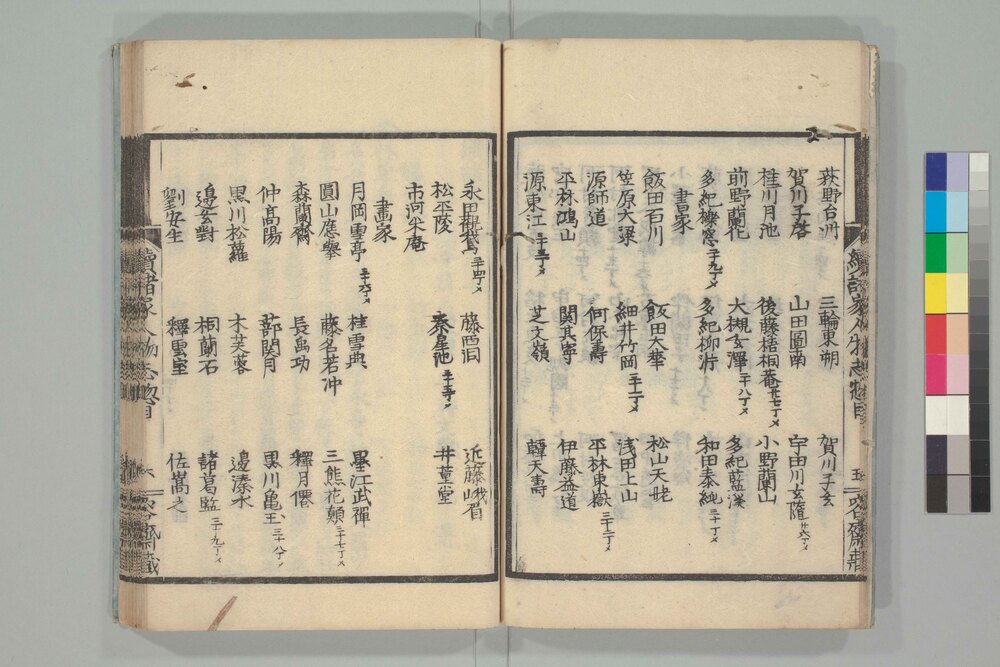 荻野台州　三輪東朔　賀川子玄
賀川子啓　山田圖南　宇田川玄隨 廿六丁メ
桂川月池　後藤梧桐菴 廿七丁メ　小野蘭山
前野蘭化　大槻玄澤 二十八丁メ　多紀藍溪
多紀櫟窓 二十九丁メ　多紀柳沜　和田泰純 三十丁メ
書家
飯田石川　飯田大華　松山天姥
笠原大渠　細井竹岡 三十一丁メ　浅田上山
源師道　何保壽　平林東嶽 三十二丁メ
平林鴻山　関其寧　伊藤益道
源東江 三十三丁メ　芝文嶺　韓天壽
永田觀鵞 三十四丁メ　藤囧　近藤峨眉
松平陵　秦星池 三十五丁メ　井董堂
市河米庵
畫家
月岡雪亭 三十六丁メ　桂雪典　墨江武禅
圓山應擧　藤名若冲　三熊花顛 三十七丁メ
森蘭齋　長禹功　釋月僊
仲髙陽　蔀関月　黒川亀玉 三十八丁メ
黒川松蘿　木芙蓉　邉溱水
邉玄對　桐蘭石　諸葛監 三十九丁メ
劉安生　釋雲室　佐嵩之
續諸家人物志惣目　六